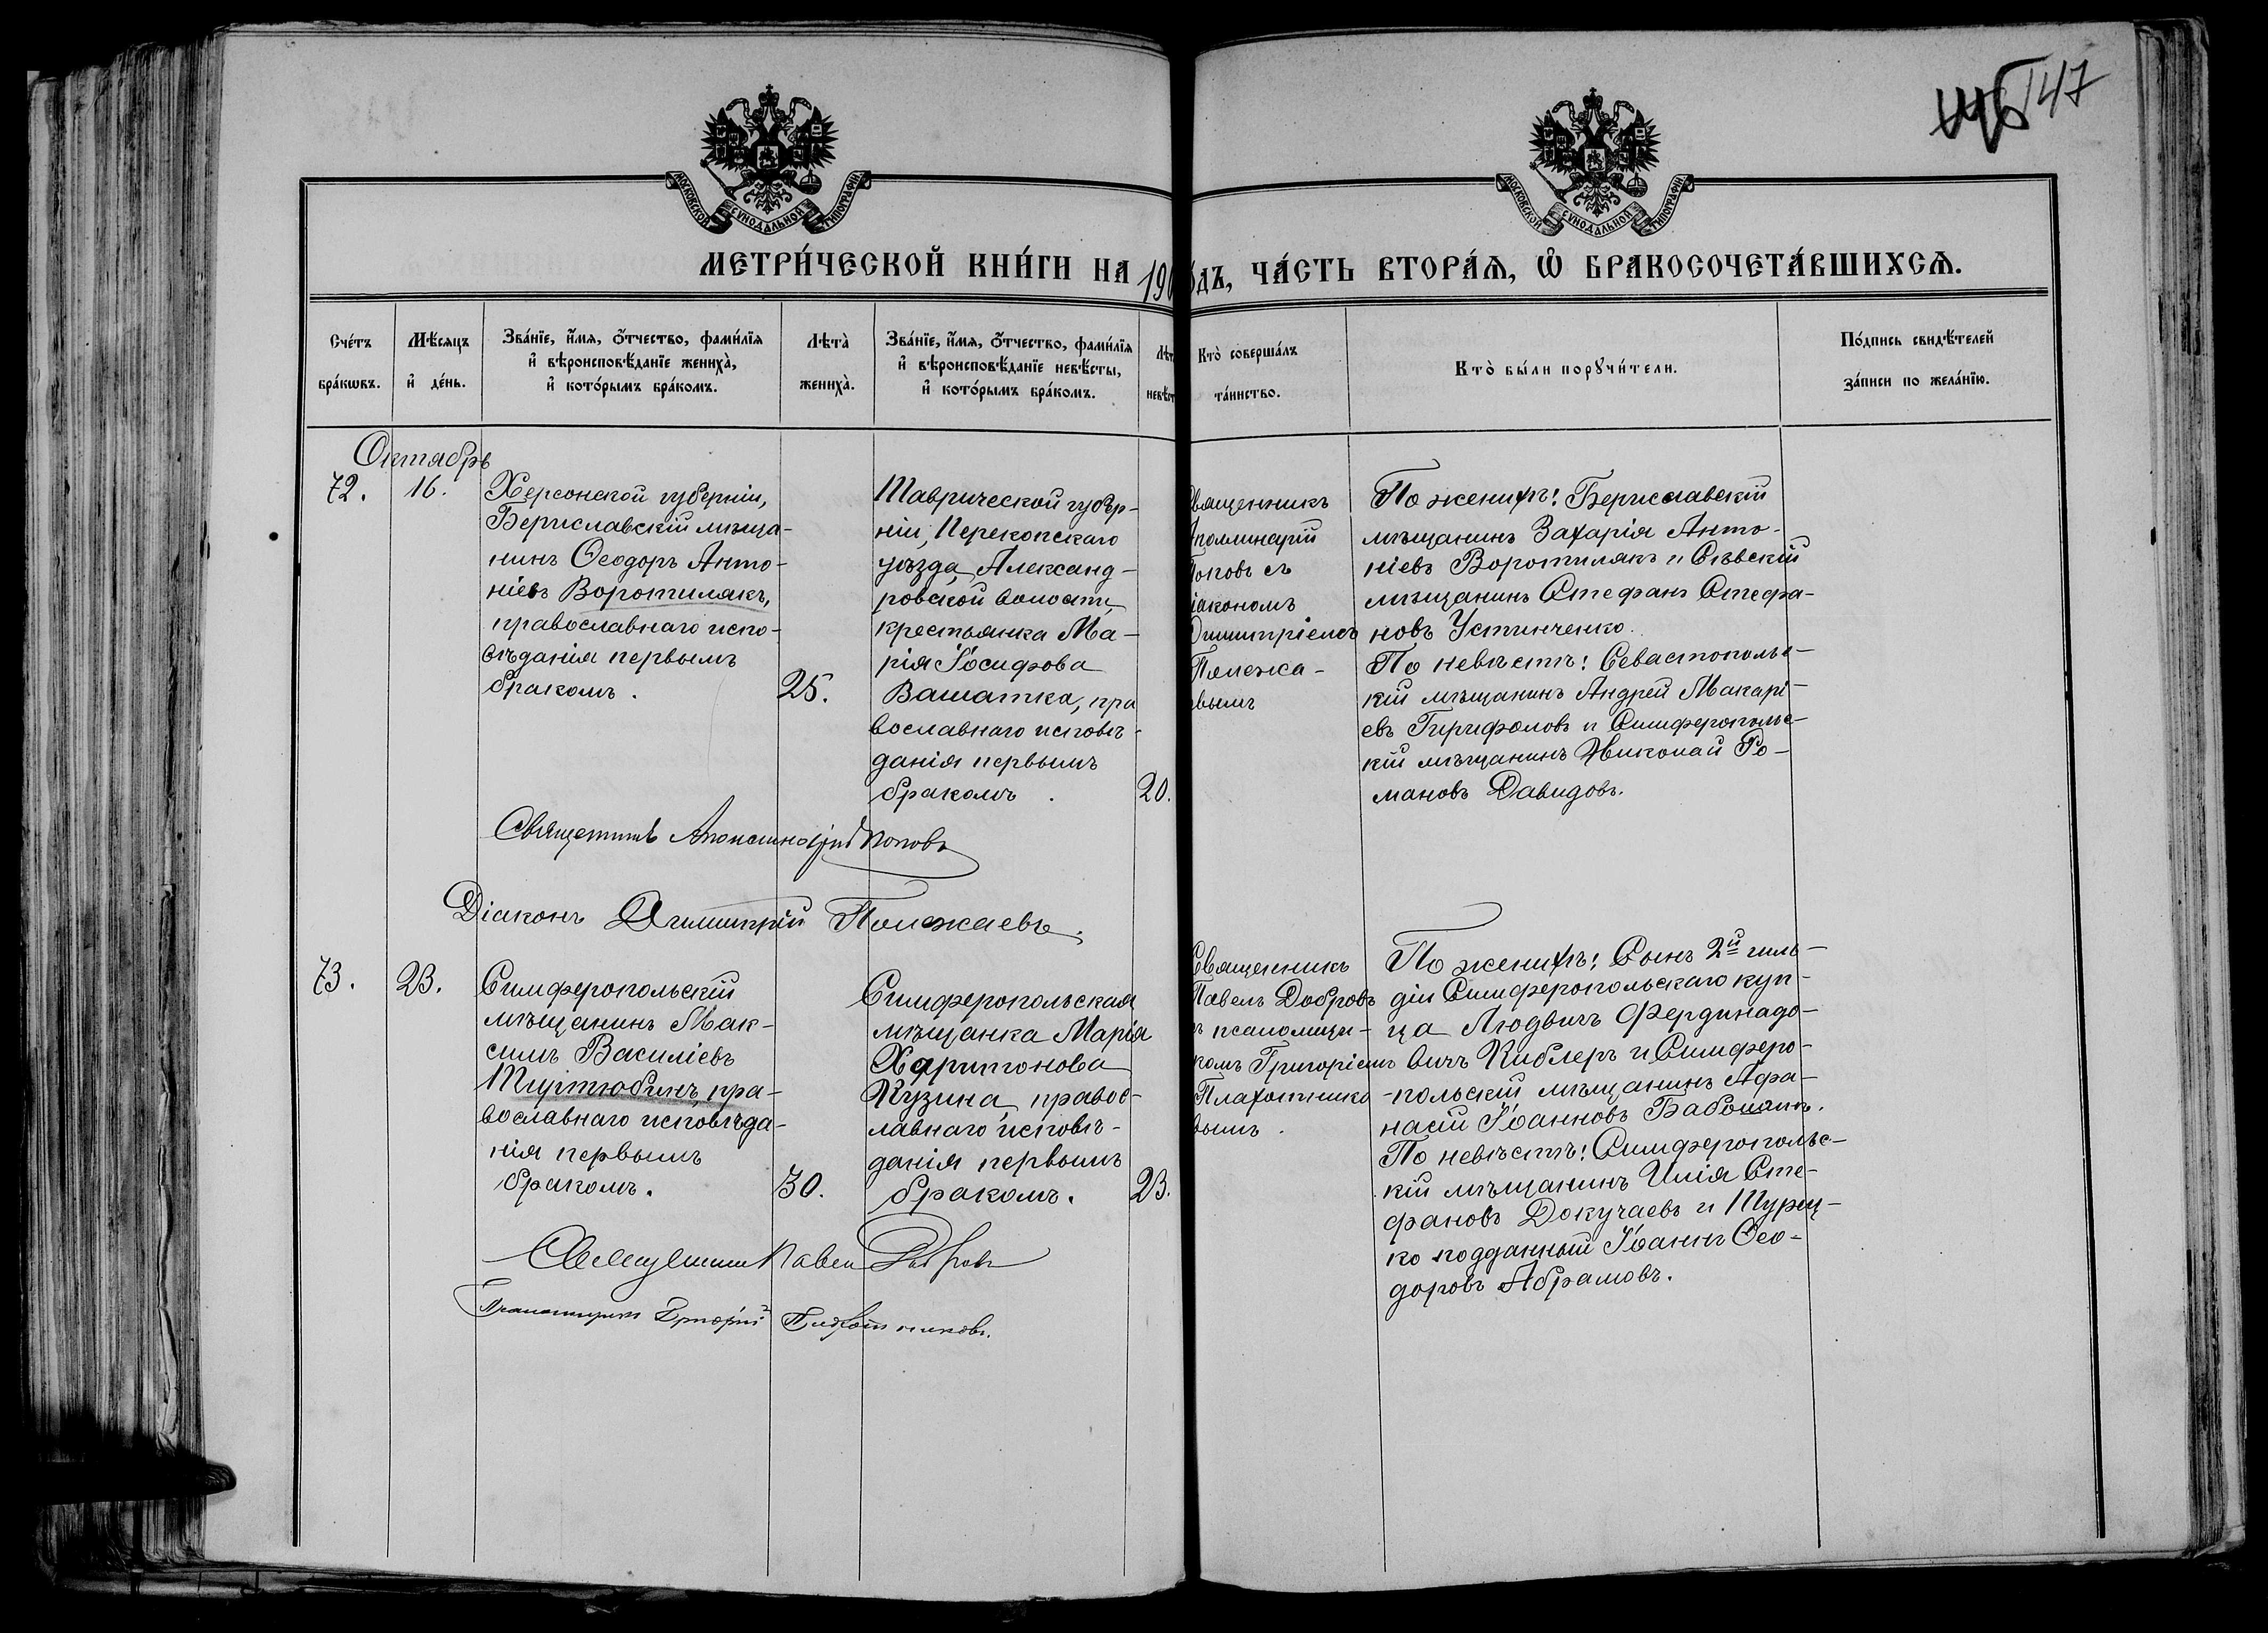 147
МОСКОВСКОЙ СУНОДАЛЬНОЙ ТИПОГРАФІИ
МОСКОВСКОЙ СУНОДАЛЬНОЙ ТИПОГРАФІИ
МЕТРИ́ЧЕСКОЙ КНИ́ГИ НА 190
ДЪ, ЧА́СТЬ ВТОРА́Я, Ѡ҆ БРАКОСОЧЕТА́ВШИХСЯ.
Сче́тъ
бра́кѡвъ.
Мѣ́сяцъ
и҆ де́нь.
Зва́нїе, и҆́мя, ѻ҆́тчество, фами́лїя
и҆ вѣроисповѣ́данїе жениха̀,
и҆ кото́рымъ бра́комъ.
Лѣта̀
жениха̀.
Зва́нїе, и҆́мя, ѻ҆́тчество, фами́лїя
и҆ вѣроисповѣ́данїе невѣ́сты,
и҆ кото́рымъ бра́комъ.
Лѣт
невѣст
Кто̀ соверша́лъ
та́инство.
Кто̀ бы́ли порꙋчи́тели.
По́дпись свидѣ́телей
за́писи по жела́нїю.
Октябрь
72.
16.
Херсонской губерніи,
Бериславскій мѣща-
нинъ Ѳеодоръ Анто-
ніевъ Воротилякъ,
православнаго испо-
вѣданія первымъ
бракомъ.
25.
Таврической губер-
ніи, Перекопскаго
уѣзда, Александ-
ровской волости,
крестьянка Ма-
рія Іосифова
Вашатка, пра
вославнаго исповѣ-
данія первымъ
бракомъ.
20.
Священникъ
Аполлинарій
Поповъ съ
діакономъ
Димитріемъ
Полежа-
евымъ
По женихѣ: Бериславскій
мѣщанинъ Захарія Анто-
ніевъ Воротилякъ и Сѣвскій
мѣщанинъ Стефанъ Стефа-
новъ Устинченко.
По невѣстѣ: Севастопольс-
кій мѣщанинъ Андрей Макарі-
евъ Гирифоловъ и Симферопольс-
кій мѣщанинъ Николай Ро-
мановъ Давидовъ.
Священникъ Аполлинарій Поповъ
Діаконъ Димитрій Полежаевъ.
73.
23.
Симферопольскій
мѣщанинъ Мак-
симъ Василіевъ
Тугтюбинъ, пра-
вославнаго исповѣда-
нія первымъ
бракомъ.
30.
Симферопольская
мѣщанка Марія
Харитонова
Кузина, правос-
лавнаго исповѣ-
данія первымъ
бракомъ.
23.
Священникъ
Павелъ Добровъ
ъ псаломщи-
комъ Григоріемъ
Плахотнико-
вымъ.
По женихѣ: Сынъ 2й гиль-
діи Симферопольскаго куп-
ца Людвигъ Фердинадо-
вичъ Киблеръ и Симферо-
-польскій мѣщанинъ Афа-
насій Іоанновъ
По невѣстѣ: Симферопольс-
кій мѣщанинъ Илія Сте-
фановъ Докучаевъ и Турец-
ко подданный Іоаннъ Ѳео-
доровъ Абрамовъ.
Священникъ Павелъ Добровъ
Псаломщикъ Григорій Плахотниковъ.